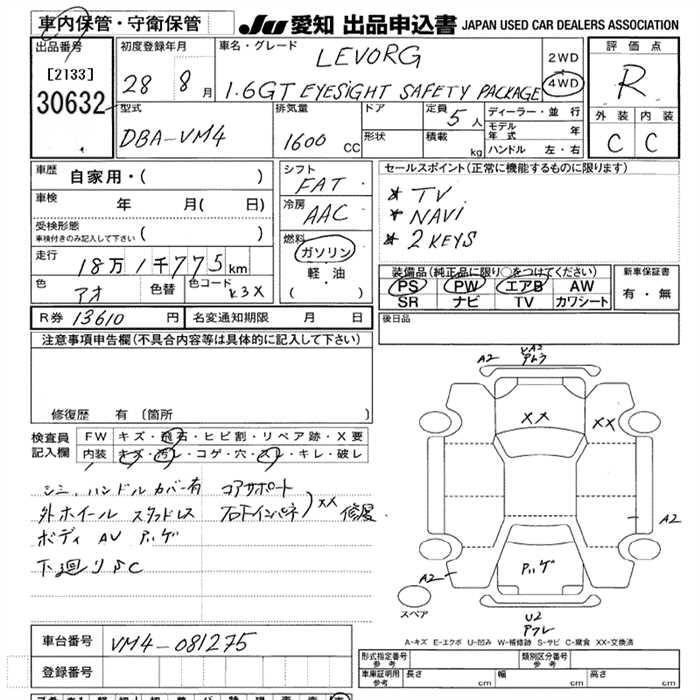 車内保管・守衛保管 JU 愛知 出品申込書 JAPAN USED CAR DEALERS ASSOCIATION
出品番号 [2133] 30632
初度登録年月 28 8月
車名・グレード LEVORG
1.6GT EYESIGHT SAFETY PACKAGE
2WD 4WD
評価点 R
外装 内装
C C
型式 DBA-VM4
排気量 1600 CC
ドア 形状
定員 5人
積載 kg
ディーラー・並行
モデル年式 年
ハンドル 左・右
車歴 自家用・( )
車検 年 月( 日)
受検形態
車検付きのみ記入して下さい ( )
走行 18万1千775km
色 アオ 色替 色コード K3X
シフト FAT
冷房 AAC
燃料 ガソリン
軽・油
( )
セールスポイント(正常に機能するものに限ります)
* TV
* NAVi
* 2 KEYS
装備品(純正品に限り○をつけてください)
PS PW エアB AW
SR ナビ TV カワシート
新車保証書
有・無
R券 13610 円 名変通知期限 月 日
後日品
注意事項申告欄(不具合内容等は具体的に記入して下さい)
修復歴 有 〔箇所 〕
検査員記入欄
FW キズ・飛石・ヒビ割・リペア跡・X要
内装 キズ・汚レ・コゲ・穴・スレ・キレ・破レ
シミ、ハンドルカバー有 コアサポート
外ホイール スタッドレス XX 修歴
ボディ AV アゲ
下廻り SC
A2 UA2
XX XX
A2
アゲ
A2
スペア
U2
A-キズ E-エクボ U-凹み W-補修跡 S-サビ C-腐食 XX-交換済
車台番号 VM4-081275
登録番号
型式指定番号 参考
類別区分番号 参考
車庫証明用 参考 長さ cm 幅 cm 高さ cm